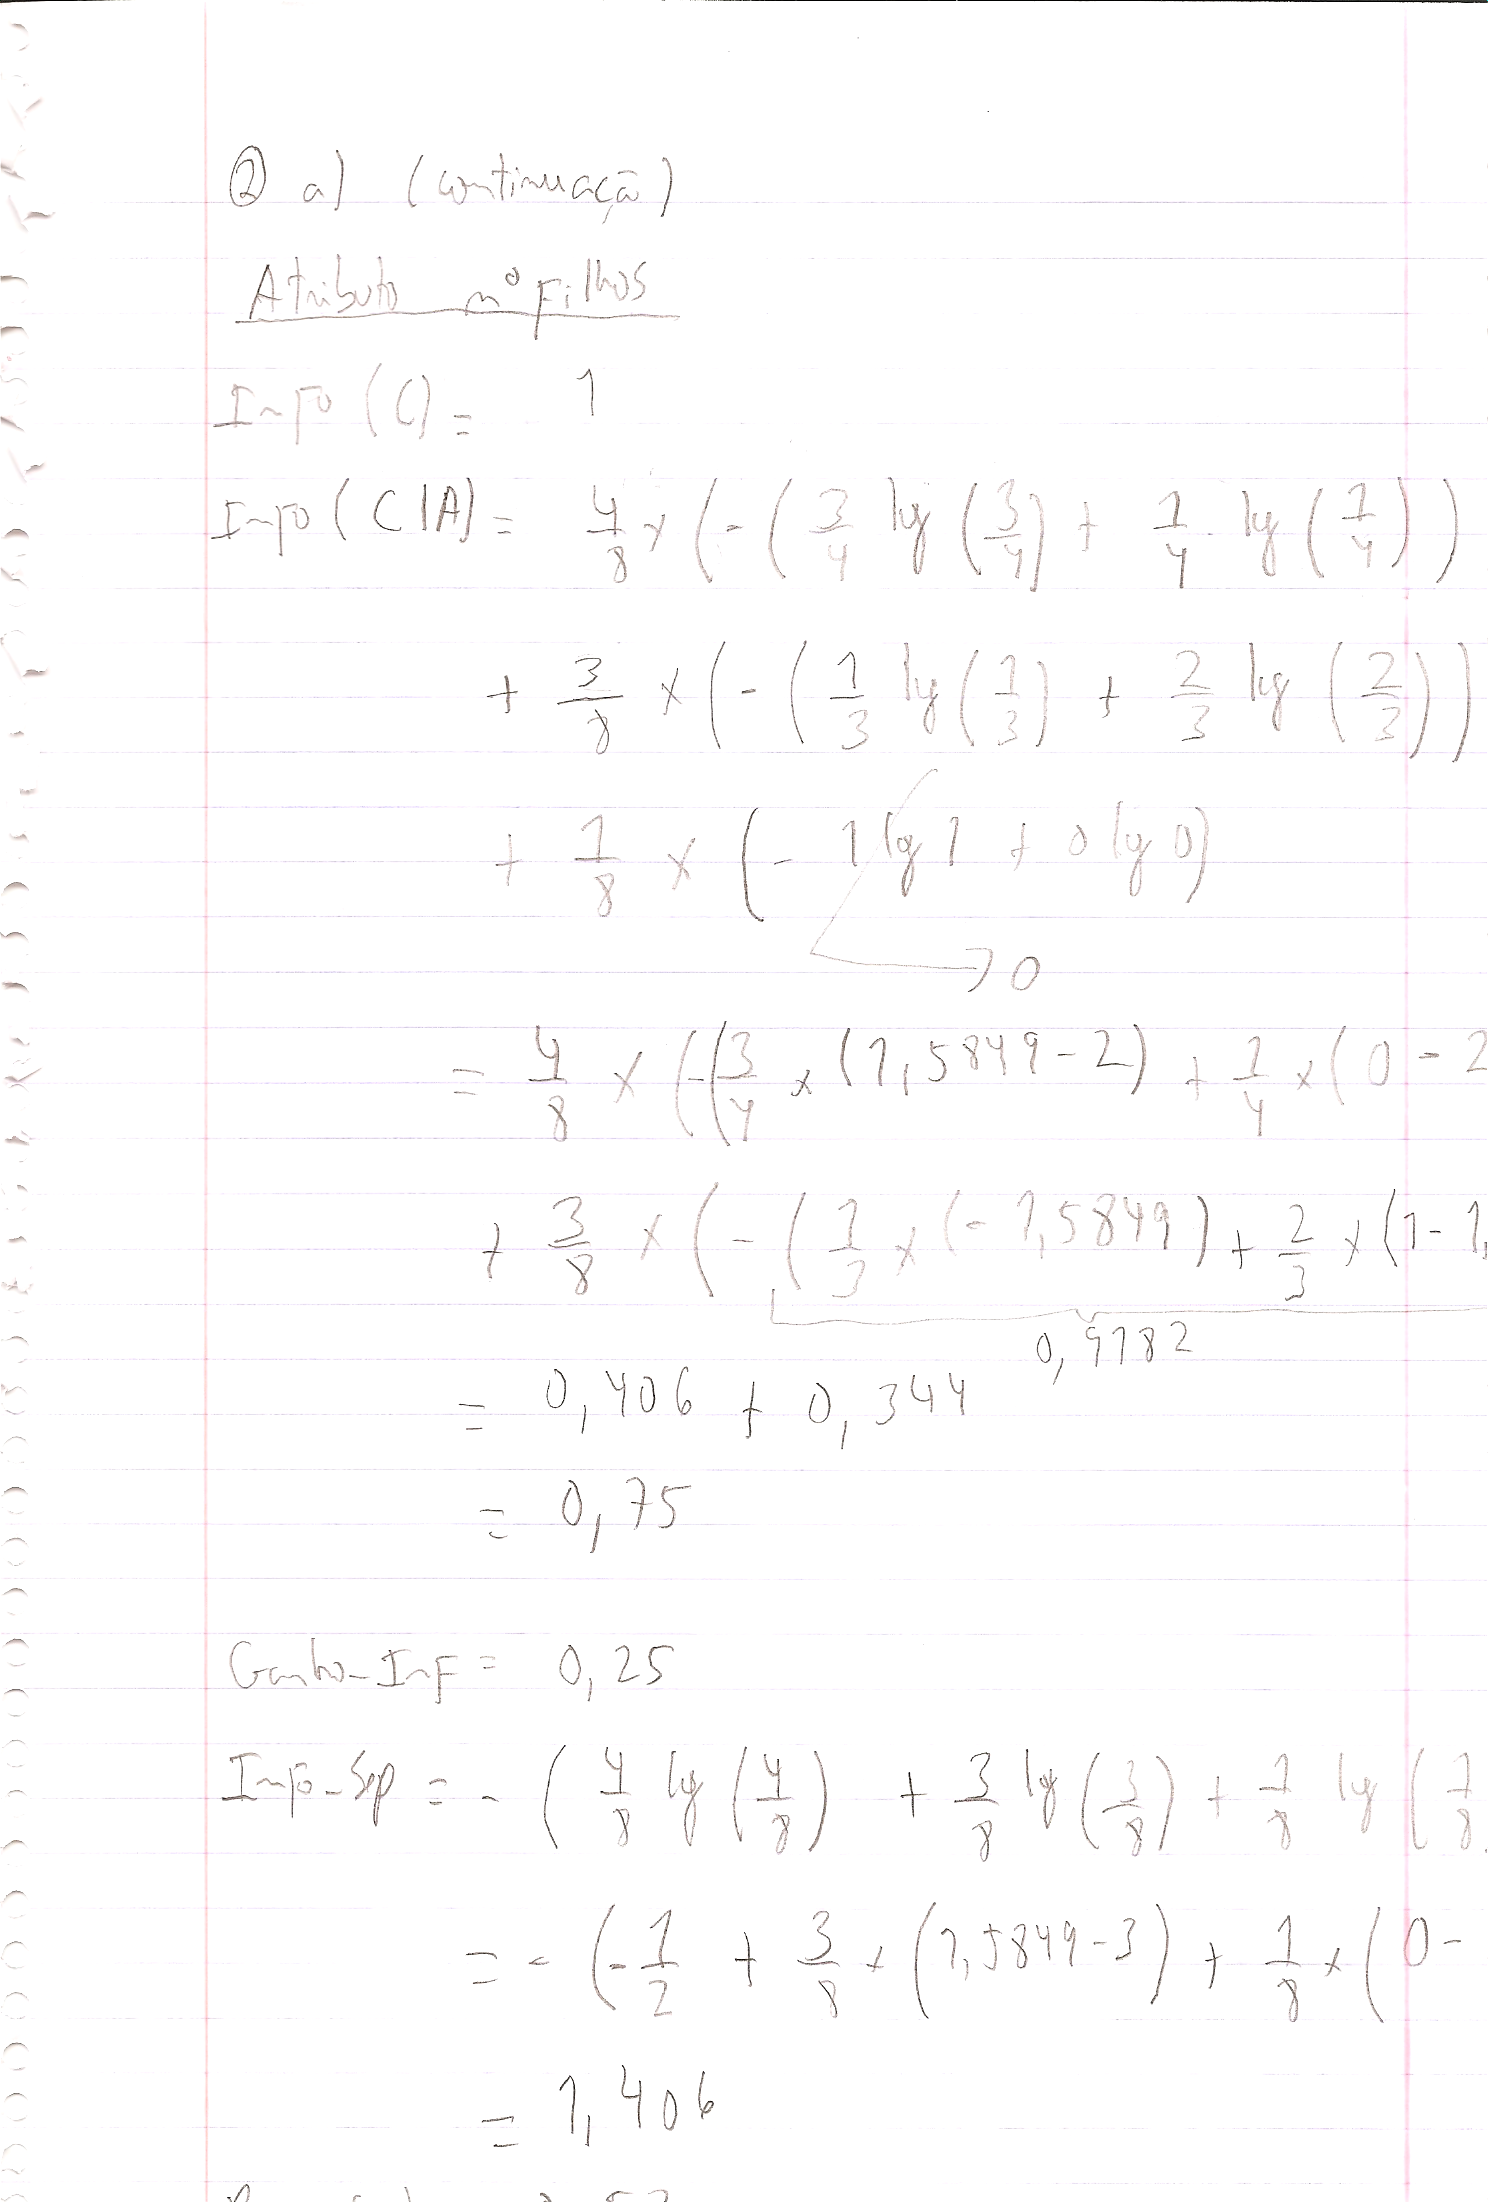 ② a) (continuação)
Atributo nº Filhos
Info (C) = 1
Info (C|A) = 4/8 × (-(3/4 lg (3/4) + 1/4 lg (1/4))
+ 3/8 × (-(1/3 lg (1/3) + 2/3 lg (2/3))
+ 1/8 × (- 1 lg 1 + 0 lg 0)
→ 0
= 4/8 × (-(3/4 × (1,5849 - 2) + 1/4 × (0 - 2
+ 3/8 × (-(1/3 × (-1,5849) + 2/3 × (1 - 1,
0,9182
= 0,406 + 0,344
= 0,75
Ganho_Inf = 0,25
Info_Sep = - (4/8 lg (4/8) + 3/8 lg (3/8) + 1/8 lg (1/8
= - (-1/2 + 3/8 × (1,5849 - 3) + 1/8 × (0 -
= 1,406